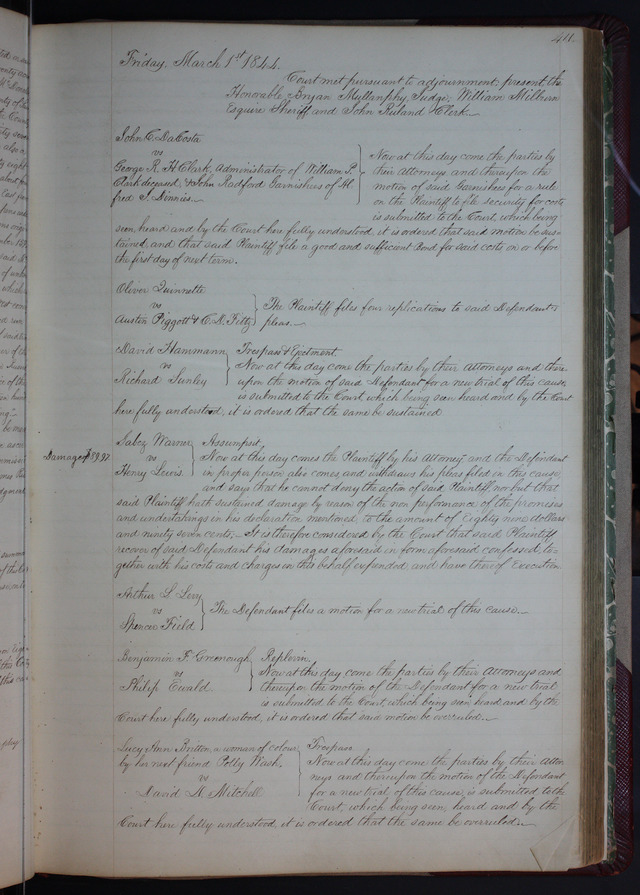 411.
Friday, March 1st 1844.
Court met pursuant to adjournment, present the
Honorable Bryan Mullanphy, Judge, William Milburn
Esquire Sheriff, and John Ruland Clerk.
John C. DaCosta
vs
George R. H. Clark, Administrator of William P.
Clark deceased, & John Radford Garnishees of Al
fred S. Dinnies.
Now at this day come the parties by
their Attorneys and thereupon the
motion of said Garnishees for a rule
on the Plaintiff to file security for costs
is submitted to the Court, which being
seen, heard and by the Court here fully understood, it is ordered that said motion be sus-
tained, and that said Plaintiff file a good and sufficient Bond for said costs on or before
the first day of next term.
Oliver Quinnette
vs
Austin Piggott & C. D. Fitz
The Plaintiff files four replications to said Defendants
pleas.
David Hammann
vs
Richard Sunley
Trespass & Ejectment,
Now at this day come the parties by their Attorneys and there-
upon the motion of said Defendant for a new trial of this cause,
is submitted to the Court which being seen heard and by the Court
here fully understood, it is ordered that the same be sustained
Damages $89.97.
Jabez Warner
vs
Henry Lewis
Assumpsit,
Now at this day comes the Plaintiff by his Attorney and the Defendant
in proper person also comes and withdraws his pleas filed in this cause,
and says that he cannot deny the action of said Plaintiff nor but that
said Plaintiff hath sustained damage by reason of the non performance of the promises
and undertakings in his declaration mentioned, to the amount of Eighty nine dollars
and ninety seven cents. It is therefore considered by the Court that said Plaintiff
recover of said Defendant his damages aforesaid in form aforesaid confessed, to-
gether with his costs and charges in this behalf expended, and have thereof Execution.
Arthur L. Levy
vs
Spencer Field
The Defendant files a motion for a new trial of this cause.
Benjamin F. Greenough
vs
Philip Ewald
Replevin,
Now at this day come the parties by their Attorneys and
thereupon the motion of the Defendant for a new trial
is submitted to the Court, which being seen, heard, and by the
Court here fully understood, it is ordered that said motion be overruled.
Lucy Ann Britton, a woman of colour
by her next friend Polly Wash.
vs
David D. Mitchell
Trespass
Now at this day come the parties by their Attor-
neys and thereupon the motion of the Defendant
for a new trial of this cause, is submitted to the
Court, which being seen, heard and by the
Court here fully understood, it is ordered that the same be overruled.